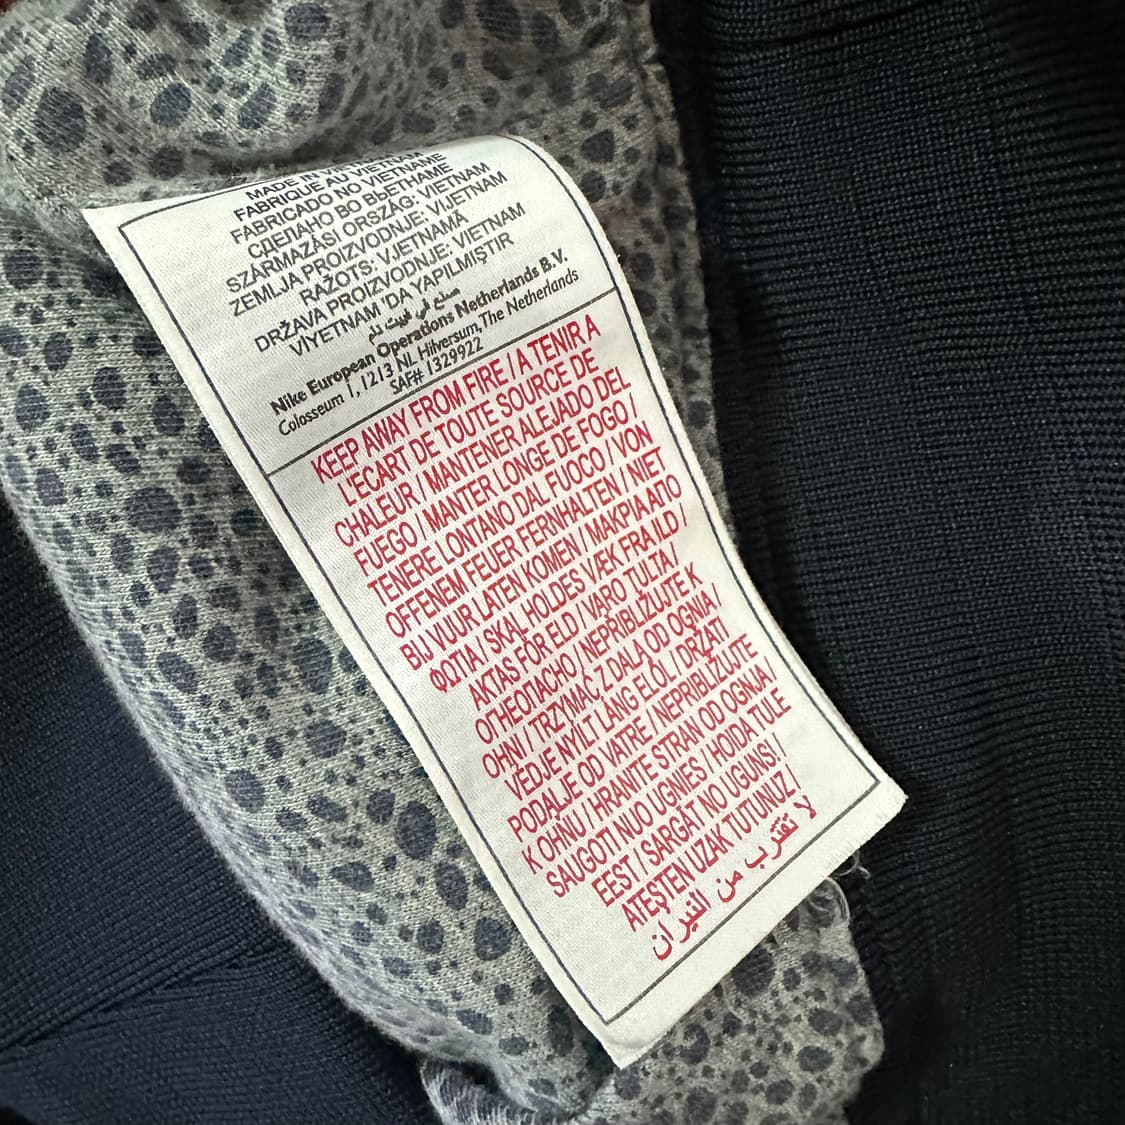 MADE IN VIETNAM
FABRIQUE AU VIETNAM
FABRICADO NO VIETNAME
СДЕЛАНО ВО ВЬЕТНАМЕ
SZÁRMAZÁSI ORSZÁG: VIETNAM
ZEMLJA PROIZVODNJE: VIJETNAM
RAŽOTS: VJETNAMĀ
DRŽAVA PROIZVODNJE: VIETNAM
VİYETNAM 'DA YAPILMIŞTIR
صنع في فييت نام
Nike European Operations Netherlands B.V.
Colosseum 1, 1213 NL Hilversum, The Netherlands
SAF# 1329922
KEEP AWAY FROM FIRE / A TENIR A
L'ECART DE TOUTE SOURCE DE
CHALEUR / MANTENER ALEJADO DEL
FUEGO / MANTER LONGE DE FOGO /
TENERE LONTANO DAL FUOCO / VON
OFFENEM FEUER FERNHALTEN / NIET
BIJ VUUR LATEN KOMEN / ΜΑΚΡΙΑ ΑΠΟ
ΦΩΤΙΑ / SKAL HOLDES VÆK FRA ILD /
AKTAS FÖR ELD / VARO TULTA /
ОГНЕОПАСНО / NEPŘIBLIŽUJTE K
OHNI / TRZYMAĆ Z DALA OD OGNIA /
VÉDJE NYÍLT LÁNG ELŐL / DRŽATI
PODALJE OD VATRE / NEPRIBLIŽUJTE
K OHŇU / HRANITE STRAN OD OGNJA /
SAUGOTI NUO UGNIES / HOIDA TULE
EEST / SARGĀT NO UGUNS! /
ATEŞTEN UZAK TUTUNUZ /
لا تقترب من النيران